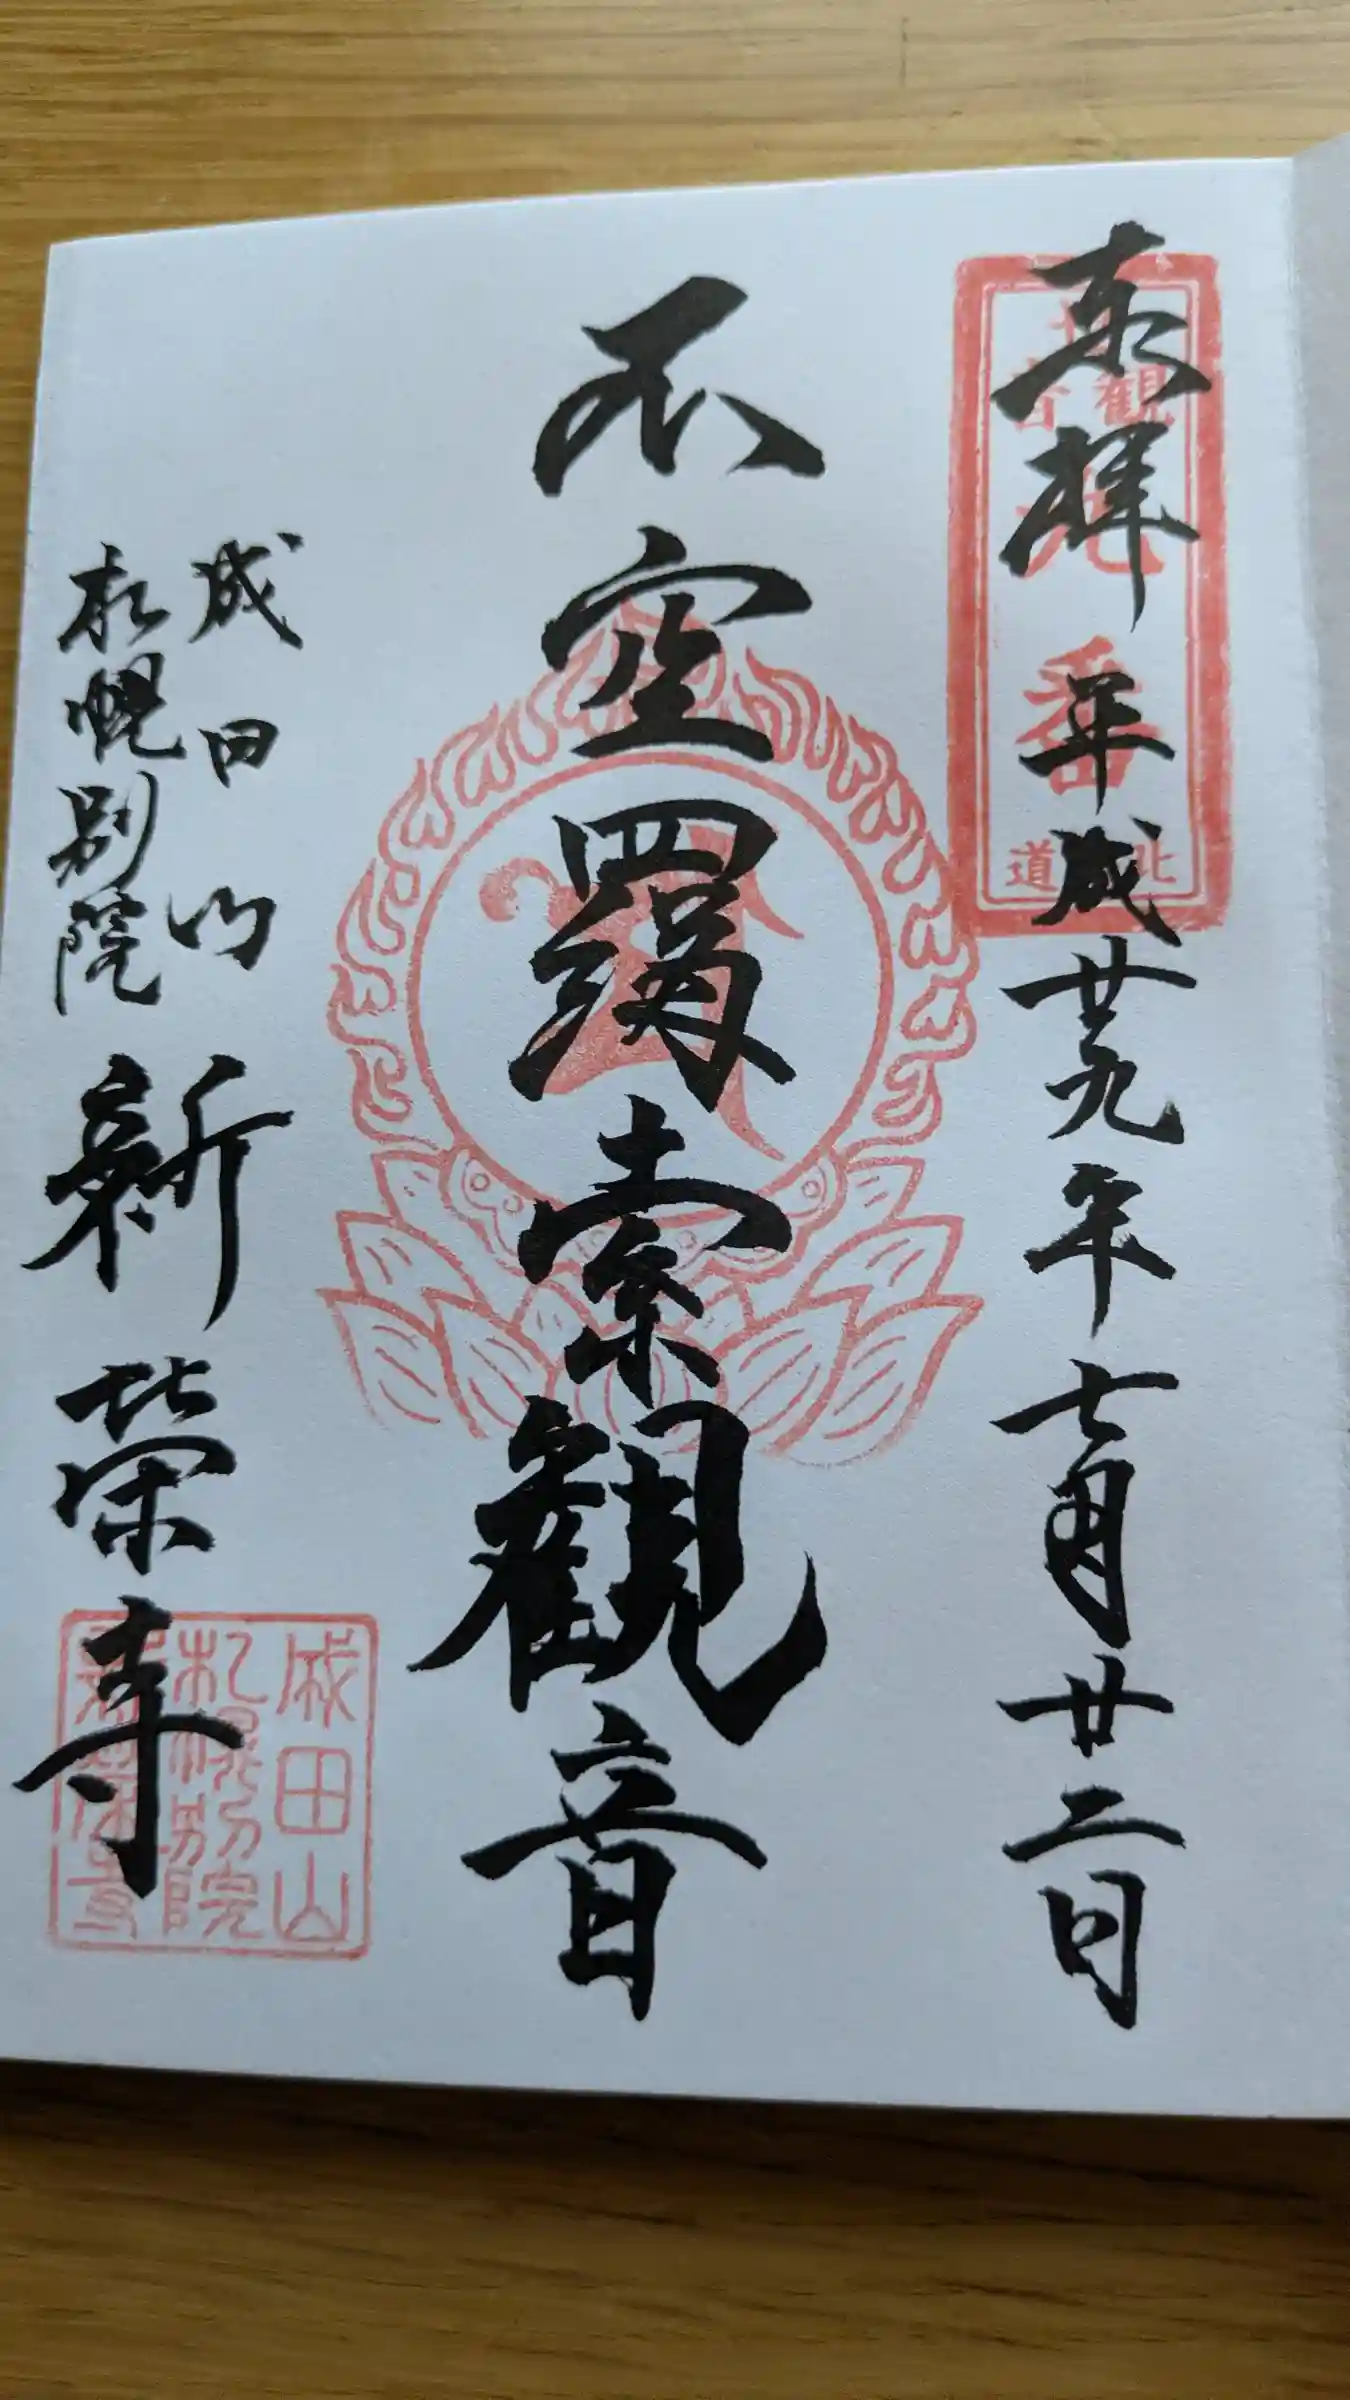 奉拝 平成廿九年七月廿二日
不空羂索観音
成田山
札幌別院
新栄寺
観音
番
北
道
成田山
札幌別院
新栄寺